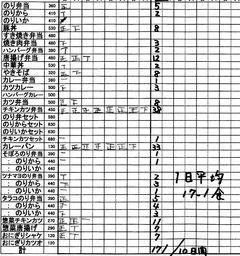 のり弁当 360 正 5
のりから 410 丅 2
のりいか 410
豚丼 正下 8
すき焼き弁当
焼き肉弁当 下 3
ハンバーグ弁当 丅 2
唐揚げ弁当 正正丅 12
中華丼 丅 2
やきそば 正下 8
カレー弁当 一 1
カツカレー 下 3
ハンバーグカレー
カツ弁当 正下 8
チキンカツ弁当 38
のり弁セット
のりからセット
のりいかセット
チキンカツセット 一 1
カレーパン 正正正正正正下 33
そぼろのり弁当 一 1
:のりから 一 1
:のりいか
ツナマヨのり弁当 丅 2
:のりから 正 5
:のりいか 丅 2
タラコのり弁当 正 5
:のりから 4
:のりいか 下 3
惣菜チキンカツ 正正一 11
惣菜唐揚げ 正丅 7
おにぎりシャケ 正丅 7
おにぎりカツオ
計 171/10日間
1日平均
17.1食